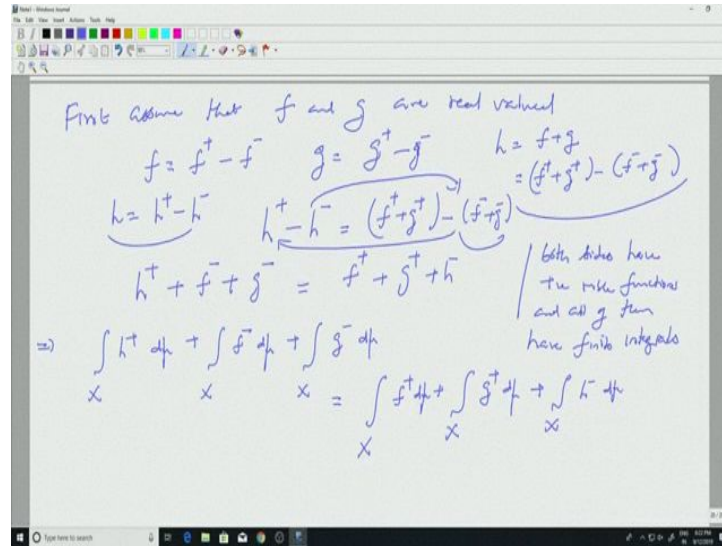 Note1 - Windows Journal
File Edit View Insert Actions Tools Help
First assume that f and g are real valued
f = f⁺ - f⁻ g = g⁺ - g⁻ h = f+g
= (f⁺+g⁺) - (f⁻+g⁻)
h = h⁺ - h⁻ h⁺ - h⁻ = (f⁺+g⁺) - (f⁻+g⁻)
h⁺ + f⁻ + g⁻ = f⁺ + g⁺ + h⁻
both sides have
+ve functions
and all of them
have finite integrals
⇒ ∫_X h⁺ dμ + ∫_X f⁻ dμ + ∫_X g⁻ dμ
= ∫_X f⁺ dμ + ∫_X g⁺ dμ + ∫_X h⁻ dμ
Type here to search